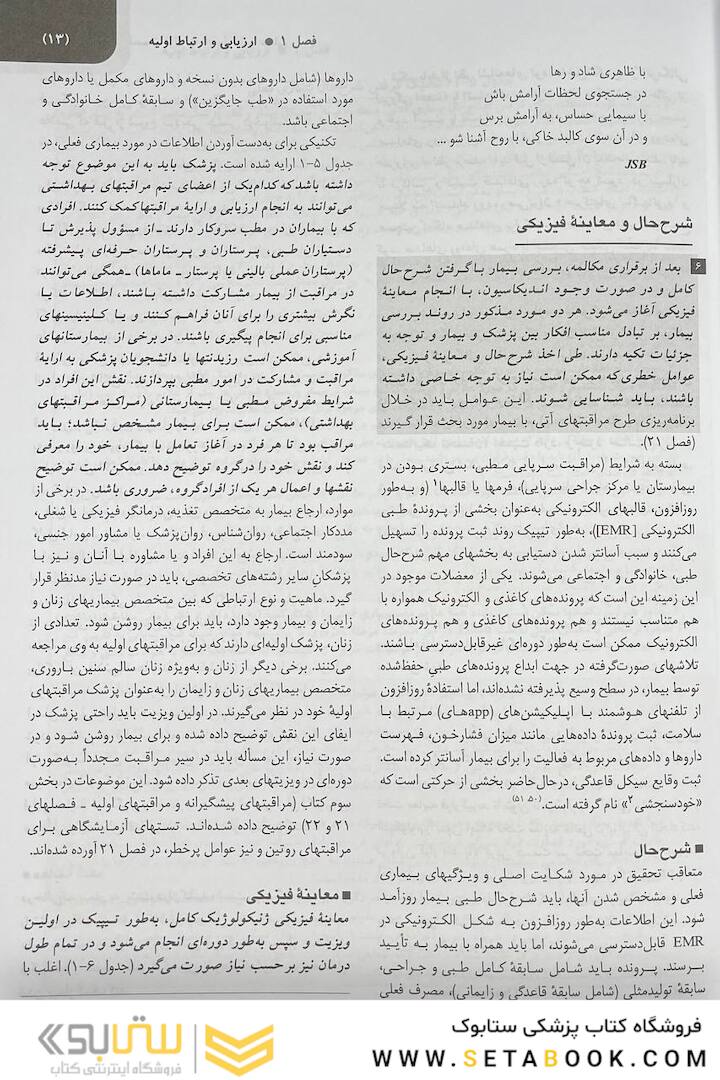 فصل ۱ ● ارزیابی و ارتباط اولیه
(۱۳)
با ظاهری شاد و رها
در جستجوی لحظات آرامش باش
با سیمایی حساس، به آرامش برس
و در آن سوی کالبد خاکی، با روح آشنا شو ...
JSB
شرح‌حال و معاینهٔ فیزیکی
۶ بعد از برقراری مکالمه، بررسی بیمار با گرفتن شرح‌حال
کامل و در صورت وجود اندیکاسیون، با انجام معاینهٔ
فیزیکی آغاز می‌شود. هر دو مورد مذکور در روند بررسی
بیمار، بر تبادل مناسب افکار بین پزشک و بیمار و توجه به
جزئیات تکیه دارند. طی اخذ شرح‌حال و معاینهٔ فیزیکی،
عوامل خطری که ممکن است نیاز به توجه خاصی داشته
باشند، باید شناسایی شوند. این عوامل باید در خلال
برنامه‌ریزی طرح مراقبتهای آتی، با بیمار مورد بحث قرار گیرند
(فصل ۲۱).
بسته به شرایط (مراقبت سرپایی مطبی، بستری بودن در
بیمارستان یا مرکز جراحی سرپایی)، فرمها یا قالبها۱ (و به‌طور
روزافزون، قالبهای الکترونیکی به‌عنوان بخشی از پروندهٔ طبی
الکترونیکی [EMR])، به‌طور تیپیک روند ثبت پرونده را تسهیل
می‌کنند و سبب آسانتر شدن دستیابی به بخشهای مهم شرح‌حال
طبی، خانوادگی و اجتماعی می‌شوند. یکی از معضلات موجود در
این زمینه این است که پرونده‌های کاغذی و الکترونیک همواره با
هم متناسب نیستند و هم پرونده‌های کاغذی و هم پرونده‌های
الکترونیک ممکن است به‌طور دوره‌ای غیرقابل‌دسترسی باشند.
تلاشهای صورت‌گرفته در جهت ابداع پرونده‌های طبی حفظ‌شده
توسط بیمار، در سطح وسیع پذیرفته نشده‌اند، اما استفادهٔ روزافزون
از تلفنهای هوشمند با اپلیکیشن‌های (appهای) مرتبط با
سلامت، ثبت پروندهٔ داده‌هایی مانند میزان فشارخون، فهرست
داروها و داده‌های مربوط به فعالیت را برای بیمار آسانتر کرده است.
ثبت وقایع سیکل قاعدگی، در‌حال‌حاضر بخشی از حرکتی است که
«خودسنجشی۲» نام گرفته است.(۵۰، ۵۱)
■ شرح‌حال
متعاقب تحقیق در مورد شکایت اصلی و ویژگیهای بیماری
فعلی و مشخص شدن آنها، باید شرح‌حال طبی بیمار روزآمد
شود. این اطلاعات به‌طور روزافزون به شکل الکترونیکی در
EMR قابل‌دسترسی می‌شوند، اما باید همراه با بیمار به تأیید
برسند. پرونده باید شامل سابقهٔ کامل طبی و جراحی،
سابقهٔ تولیدمثلی (شامل سابقهٔ قاعدگی و زایمانی)، مصرف فعلی
داروها (شامل داروهای بدون نسخه و داروهای مکمل یا داروهای
مورد استفاده در «طب جایگزین») و سابقهٔ کامل خانوادگی و
اجتماعی باشد.
تکنیکی برای به‌دست آوردن اطلاعات در مورد بیماری فعلی، در
جدول ۵-۱ ارایه شده است. پزشک باید به این موضوع توجه
داشته باشد که کدام‌یک از اعضای تیم مراقبتهای بهداشتی
می‌توانند به انجام ارزیابی و ارایهٔ مراقبتها کمک کنند. افرادی
که با بیماران در مطب سروکار دارند ـ از مسؤول پذیرش تا
دستیاران طبی، پرستاران و پرستاران حرفه‌ای پیشرفته
(پرستاران عملی بالینی یا پرستار ـ ماماها) ـ همگی می‌توانند
در مراقبت از بیمار مشارکت داشته باشند، اطلاعات یا
نگرش بیشتری را برای آنان فراهم کنند و یا کلینیسینهای
مناسبی برای انجام پیگیری باشند. در برخی از بیمارستانهای
آموزشی، ممکن است رزیدنتها یا دانشجویان پزشکی به ارایهٔ
مراقبت و مشارکت در امور مطبی بپردازند. نقش این افراد در
شرایط مفروض مطبی یا بیمارستانی (مراکز مراقبتهای
بهداشتی)، ممکن است برای بیمار مشخص نباشد؛ باید
مراقب بود تا هر فرد در آغاز تعامل با بیمار، خود را معرفی
کند و نقش خود را در گروه توضیح دهد. ممکن است توضیح
نقشها و اعمال هر یک از افراد گروه، ضروری باشد. در برخی از
موارد، ارجاع بیمار به متخصص تغذیه، درمانگر فیزیکی یا شغلی،
مددکار اجتماعی، روان‌شناس، روان‌پزشک یا مشاور امور جنسی،
سودمند است. ارجاع به این افراد و یا مشاوره با آنان و نیز با
پزشکانِ سایر رشته‌های تخصصی، باید در صورت نیاز مدنظر قرار
گیرد. ماهیت و نوع ارتباطی که بین متخصص بیماریهای زنان و
زایمان و بیمار وجود دارد، باید برای بیمار روشن شود. تعدادی از
زنان، پزشک اولیه‌ای دارند که برای مراقبتهای اولیه به وی مراجعه
می‌کنند. برخی دیگر از زنان و به‌ویژه زنان سالم سنین باروری،
متخصص بیماریهای زنان و زایمان را به‌عنوان پزشک مراقبتهای
اولیهٔ خود در نظر می‌گیرند. در اولین ویزیت باید راحتی پزشک در
ایفای این نقش توضیح داده شده و برای بیمار روشن شود و در
صورت نیاز، این مسأله باید در سیر مراقبت مجدداً به‌صورت
دوره‌ای در ویزیتهای بعدی تذکر داده شود. این موضوعات در بخش
سوم کتاب (مراقبتهای پیشگیرانه و مراقبتهای اولیه ـ فصلهای
۲۱ و ۲۲) توضیح داده شده‌اند. تستهای آزمایشگاهی برای
مراقبتهای روتین و نیز عوامل پرخطر، در فصل ۲۱ آورده شده‌اند.
■ معاینهٔ فیزیکی
معاینهٔ فیزیکی ژنیکولوژیک کامل، به‌طور تیپیک در اولین
ویزیت و سپس به‌طور دوره‌ای انجام می‌شود و در تمام طول
درمان نیز برحسب نیاز صورت می‌گیرد (جدول ۶-۱). اغلب با
فروشگاه کتاب پزشکی ستابوک
WWW.SETABOOK.COM
ستابوک
فروشگاه اینترنتی کتاب